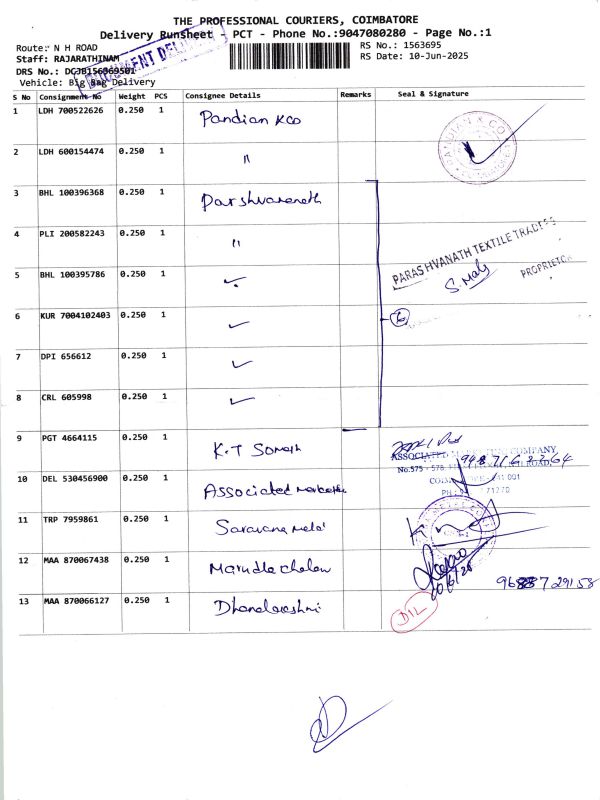 THE PROFESSIONAL COURIERS, COIMBATORE
Delivery RunSheet - PCT - Phone No.:9047080280 - Page No.:1
Route: N H ROAD
RS No.: 1563695
Staff: RAJARATHINAM
RS Date: 10-Jun-2025
DRS No.:
Vehicle: Big Bag Delivery
S No Consignment No Weight PCS Consignee Details Remarks Seal & Signature
1 LDH 700522626 0.250 1 Pandian & CO
PANDIAN & CO
2 LDH 600154474 0.250 1 "
3 BHL 100396368 0.250 1 Parshvaranath
4 PLI 200582243 0.250 1 "
PARASHVANATH TEXTILE TRADERS
5 BHL 100395786 0.250 1 ✓
S. Maly
PROPRIETOR
6 KUR 7004102403 0.250 1 ✓
6
7 DPI 656612 0.250 1 ✓
8 CRL 605998 0.250 1 ✓
9 PGT 4664115 0.250 1 K.T Somath
ASSOCIATED COMPANY
No.575 - 578,
10 DEL 530456900 0.250 1 Associated
11 TRP 7959861 0.250 1 Saravana Metal
12 MAA 870067438 0.250 1
10/6/25
13 MAA 870066127 0.250 1 Dhanalakshmi
D1L